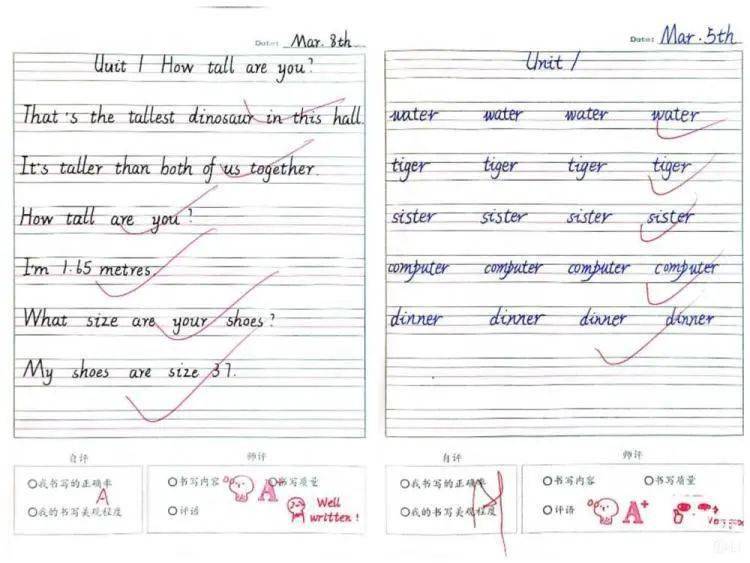 Date: Mar. 8th
Uuit 1 How tall are you?
That's the tallest dinosaur in this hall.
It's taller than both of us together.
How tall are you?
I'm 1.65 metres.
What size are your shoes?
My shoes are size 37.
自评
师评
我书写的正确率
A
我的书写美观程度
书写内容
书写质量
评语
A+
Well
written!
Date: Mar. 5th
Unit 1
water water water water
tiger tiger tiger tiger
sister sister sister sister
computer computer computer computer
dinner dinner dinner dinner
自评
师评
我书写的正确率
A
我的书写美观程度
书写内容
书写质量
评语
A+